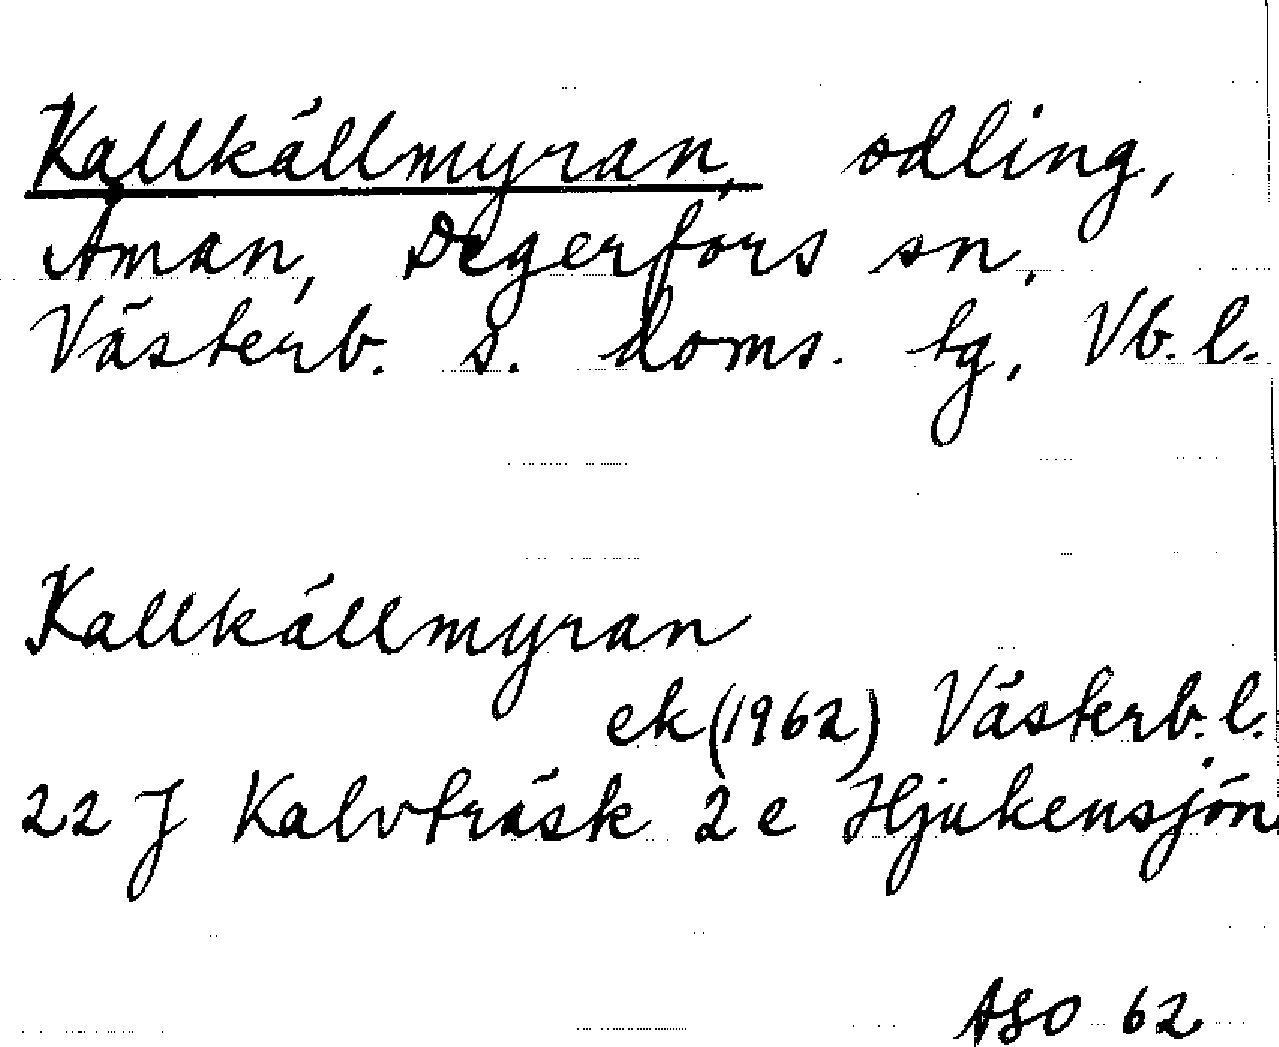 Kallkällmyran, odling,
Åman, Degerfors sn.
Västerb. s. doms. tg, Vb. l.
Kallkällmyran
ek (1962) Västerb. l.
22 J Kalvträsk 2 e Hjukensjön.
ASO 62